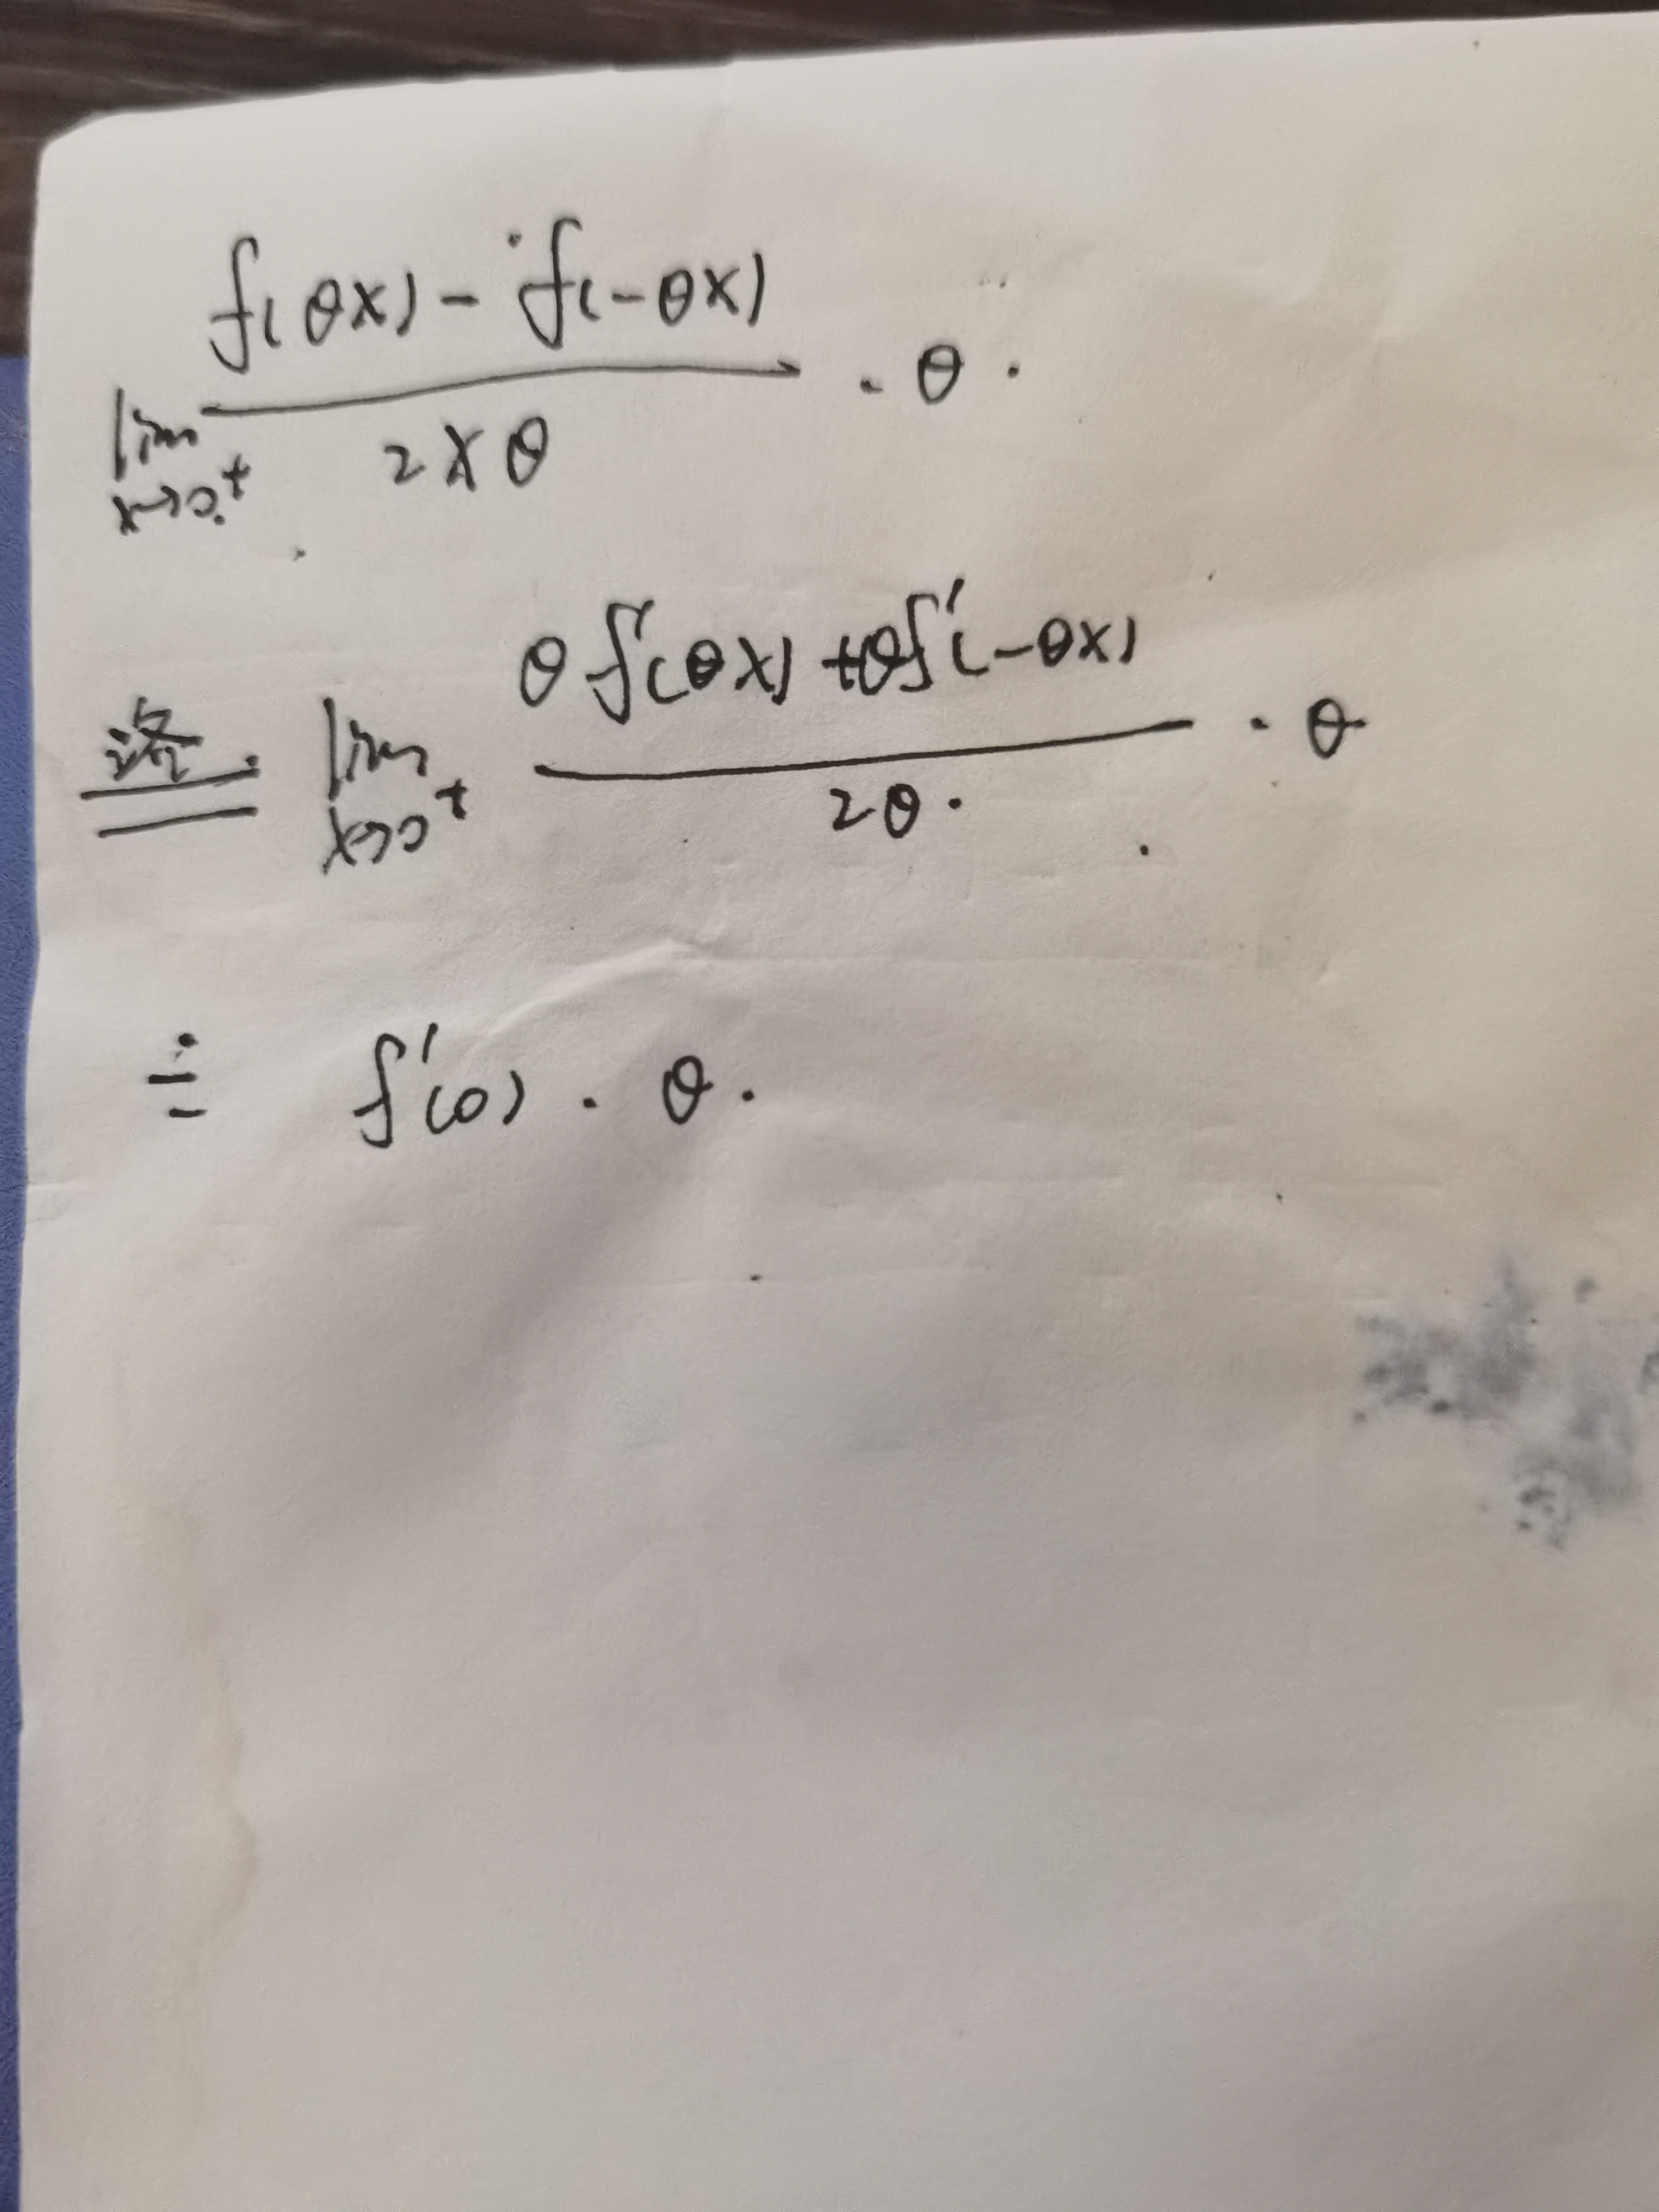 lim x→0⁺ (f(θx) - f(-θx)) / (2xθ) · θ.
洛 = lim x→0⁺ (θf'(θx) + θf'(-θx)) / (2θ) · θ
= f'(0) · θ.